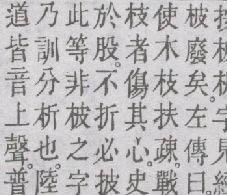 柀廢矣。左傳曰
使木枝扶疏。戰
枝者傷其心。史
於股。不折必披
此等非破之字
乃訓分析也。陸
道皆音上聲。普